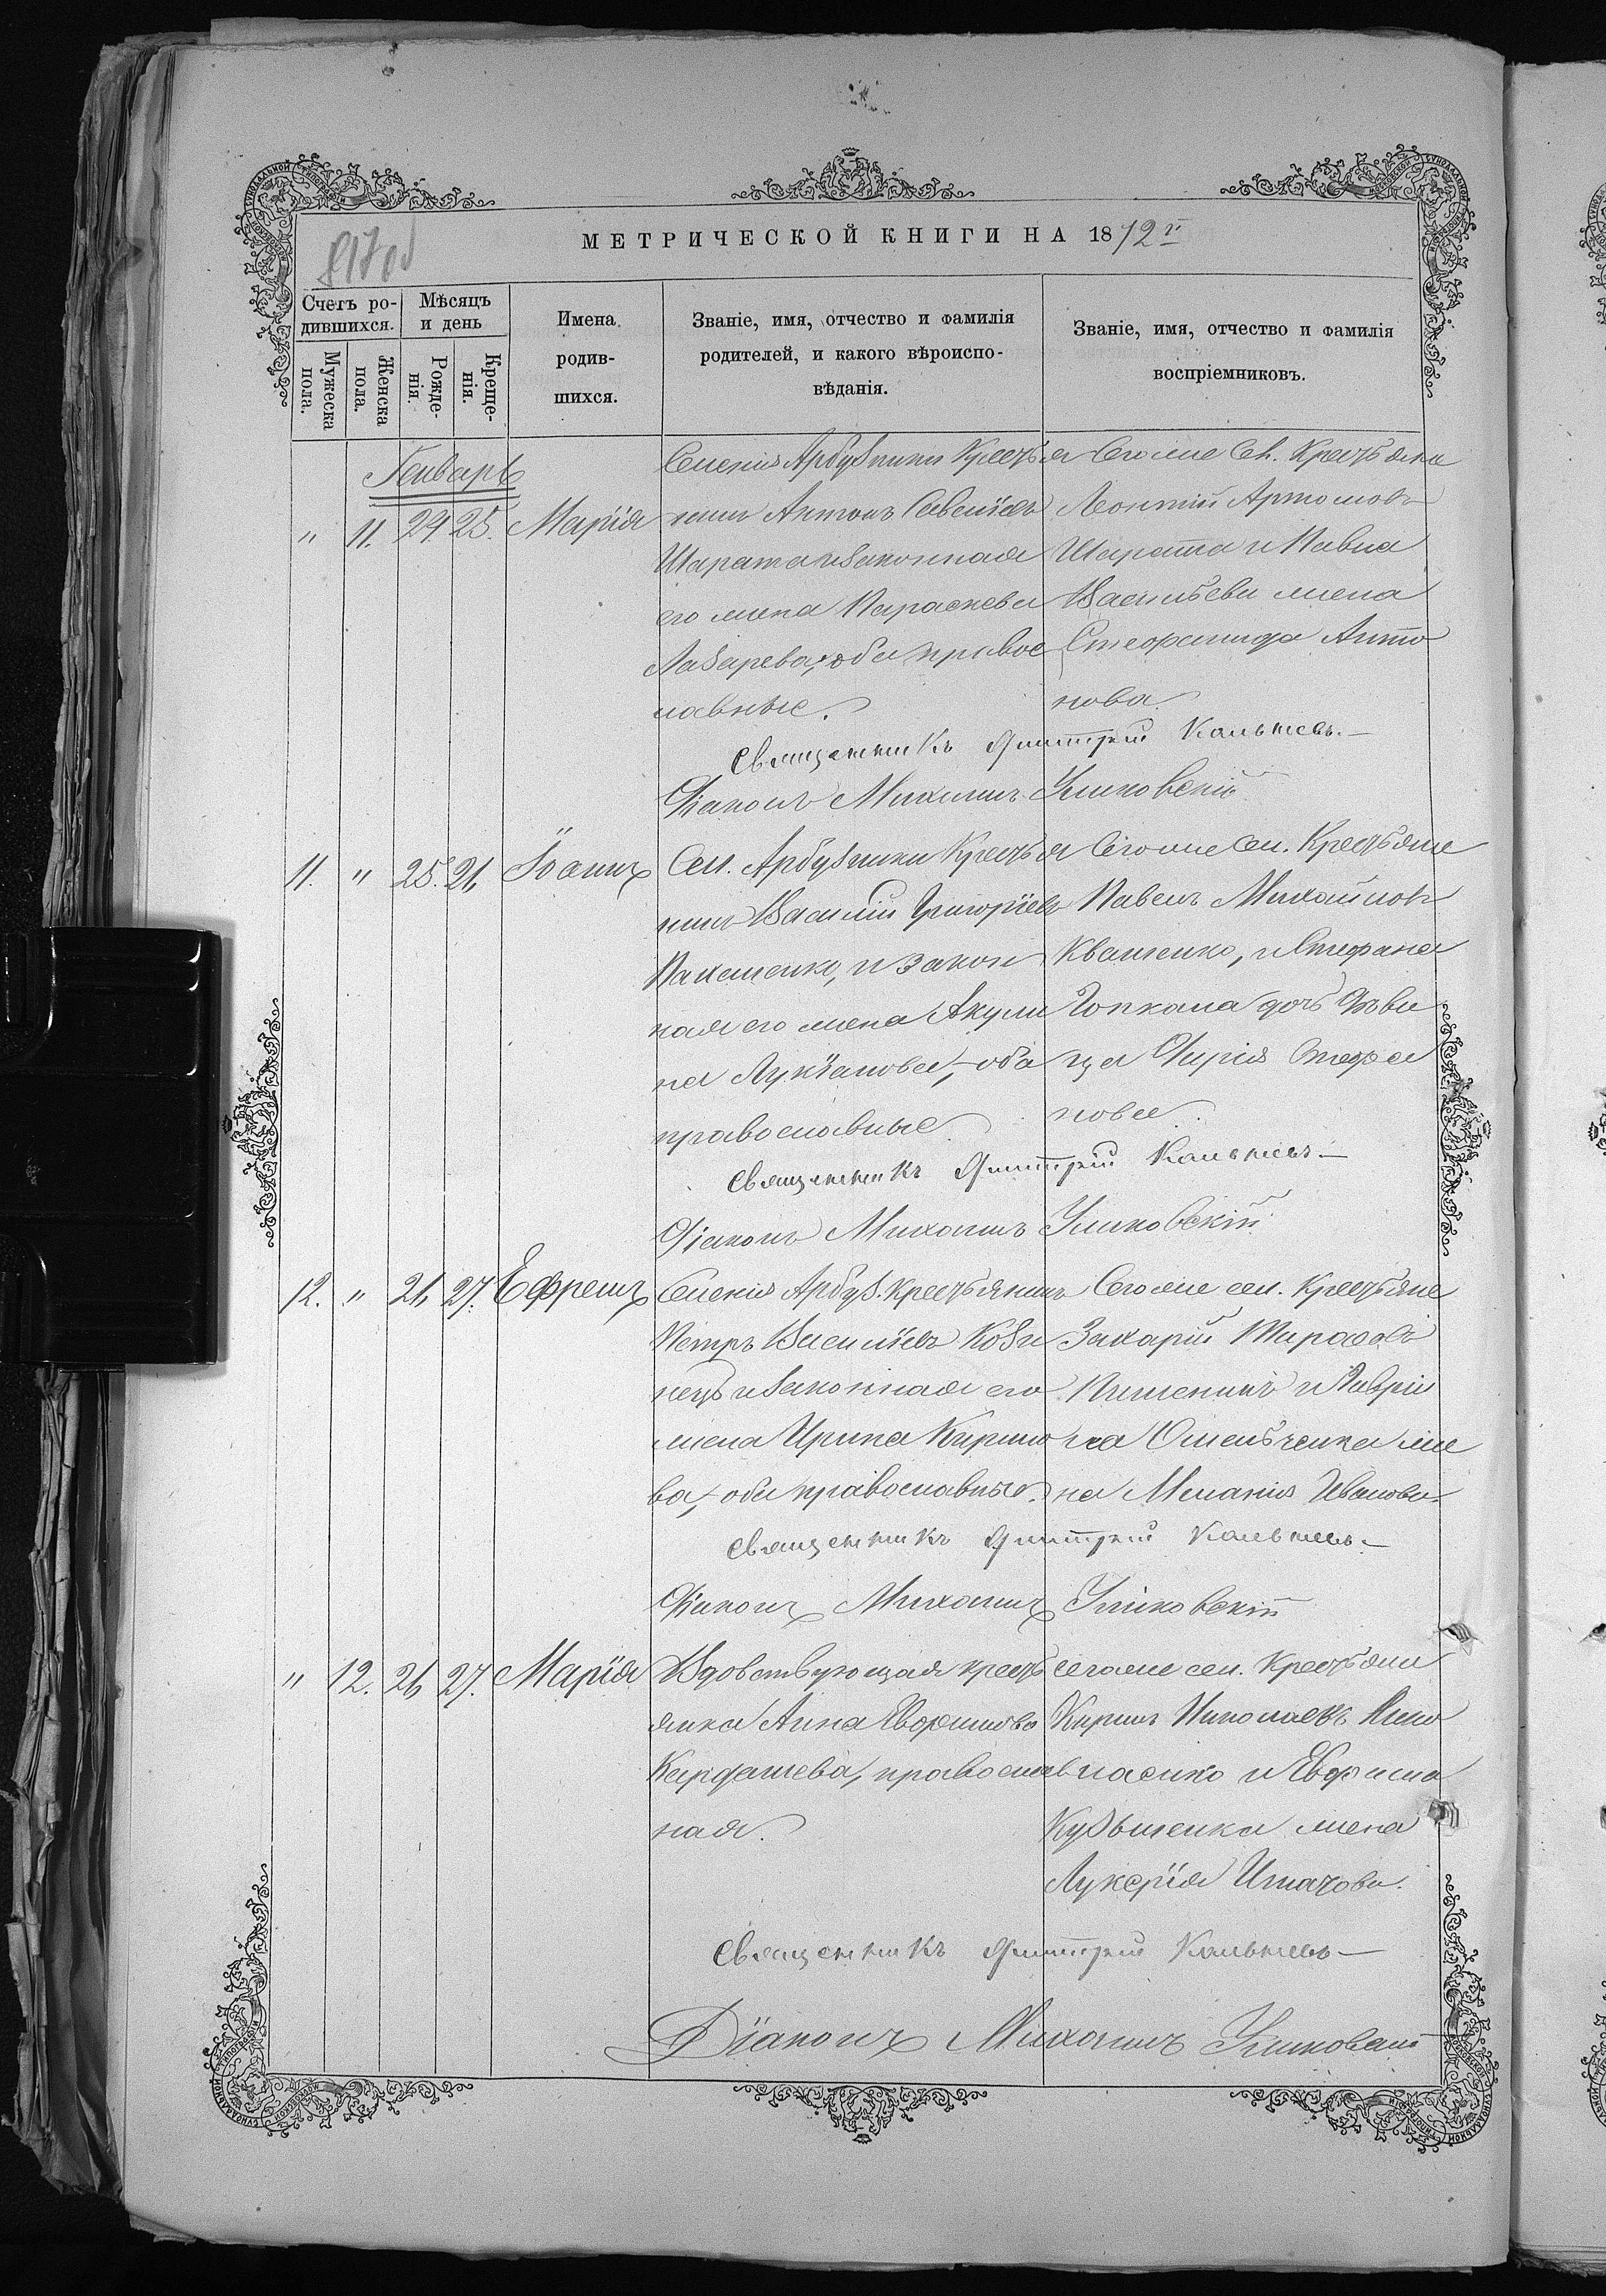 МЕТРИЧЕСКОЙ КНИГИ НА 1872 г.
Счетъ ро-
дившихся.
Мужеска пола.
Женска пола.
Мѣсяцъ
и день
Рожде-
нія.
Креще-
нія.
Имена
родив-
шихся.
Званіе, имя, отчество и фамилія
родителей, и какого вѣроиспо-
вѣданія.
Званіе, имя, отчество и фамилія
воспріемниковъ.
Генварь
" 11. 24 25. Марія
Селенія Арбузинки Крестья
нинъ Антонъ Савеліевъ
Шарата и законная
его жена Параскева
Лазарева, оба правос
лавные.
Того же Сел. Крестьяне
Леонтій Артомовъ
Шарата и Павла
Васильева жена
Стефанида Анто
нова
Священникъ Димитрій
Діаконъ Михаилъ
11. " 25. 26 Іоаннъ
Сел. Арбузинки Крестья
нинъ Василій Григоріевъ
и закон
ная его жена Акули
на Лукіанова, оба
православные
Того же Сел. Крестьяне
Павелъ Михайловъ
Кваченко, и Стефана
дочь дѣви
ца Дарія Стефа
нова.
Священникъ Димитрій
Діаконъ Михаилъ
12. " 26 27. Ефремъ
Селенія Арбуз. Крестьянинъ
Петръ Василіевъ Кози
нецъ и законная его
жена Ирина Кирило
ва, оба православные.
Того же сел. Крестьяне
Захарій Тарасовъ
и Гаврии
ла Омельченка же
на Меланія Иванова.
Священникъ Димитрій
Діаконъ Михаилъ
" 12. 26 27. Марія
Вдовствующая кресть
янка Анна Евфимова
Кардашева, православ
ная.
Того же сел. Крестьяни
Кирилъ Николаевъ
и Евфима
Кузьменка жена
Лукерія Игнатова.
Священникъ Димитрій
Діаконъ Михаилъ